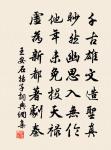 千古雄文造聖真
眇然幽思入無倫
他年未免投天祿
虛為新都著劇秦
王安石揚子詞典網